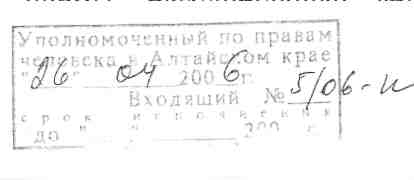 Уполномоченный по правам
человека в Алтайском крае
"26" 04 2006 г.
Входящий № 5/06-и
срок исполнения
до " " 200 г.